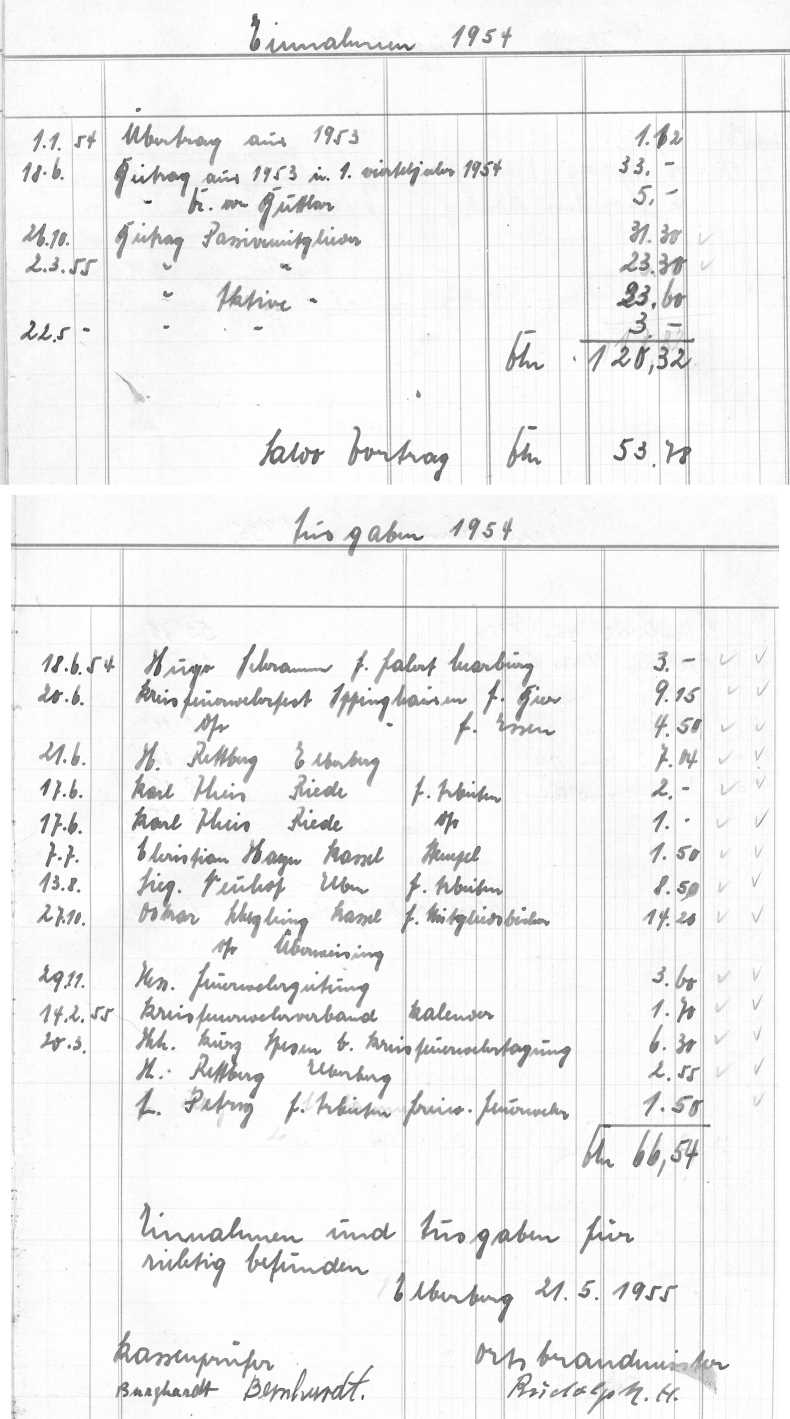 Einnahmen 1954
1.1. 54 Übertrag aus 1953 1.62
18.6. Beitrag aus 1953 u. 1. vierteljahr 1954 33.-
" Fr. von Buttlar 5.-
26.10. Beitrag Passivemitglieder 31.30
2.3.55 " " 23.30
" Aktive " 23.60
22.5 " " " 3.-
Btr 120,32
Saldo Vortrag Btr 53.78
Ausgaben 1954
18.6.54 Hugo Schramm f. Fahrt Marburg 3.-
20.6. Kreisfeuerwehrfest Ippinghausen f. Bier 9.15
dto " f. Essen 4.50
21.6. H. Rettberg Elberberg 7.04
17.6. Karl Theis Riede f. Arbeiten 2.-
17.6. Karl Theis Riede dto 1.-
7.7. Christian Kassel Stempel 1.50
13.8. Sieg. Neuhof Elben f. Arbeiten 8.50
27.10. Oskar Kassel f. Mitgliedsbücher 14.20
dto Überweisung
29.11. Hess. Feuerwehrzeitung 3.60
14.2.55 Kreisfeuerwehrverband Kalender 1.70
20.3. Hch. Kurz Spesen b. Kreisfeuerwehrtagung 6.30
H. Rettberg Elberberg 2.55
f. Arbeiten Freiw. Feuerwehr 1.50
Btr 66,54
Einnahmen und Ausgaben für
richtig befunden
Elberberg 21.5.1955
Kassenprüfer Ortsbrandmeister
Burghardt Bernhardt. Rudolph. H.